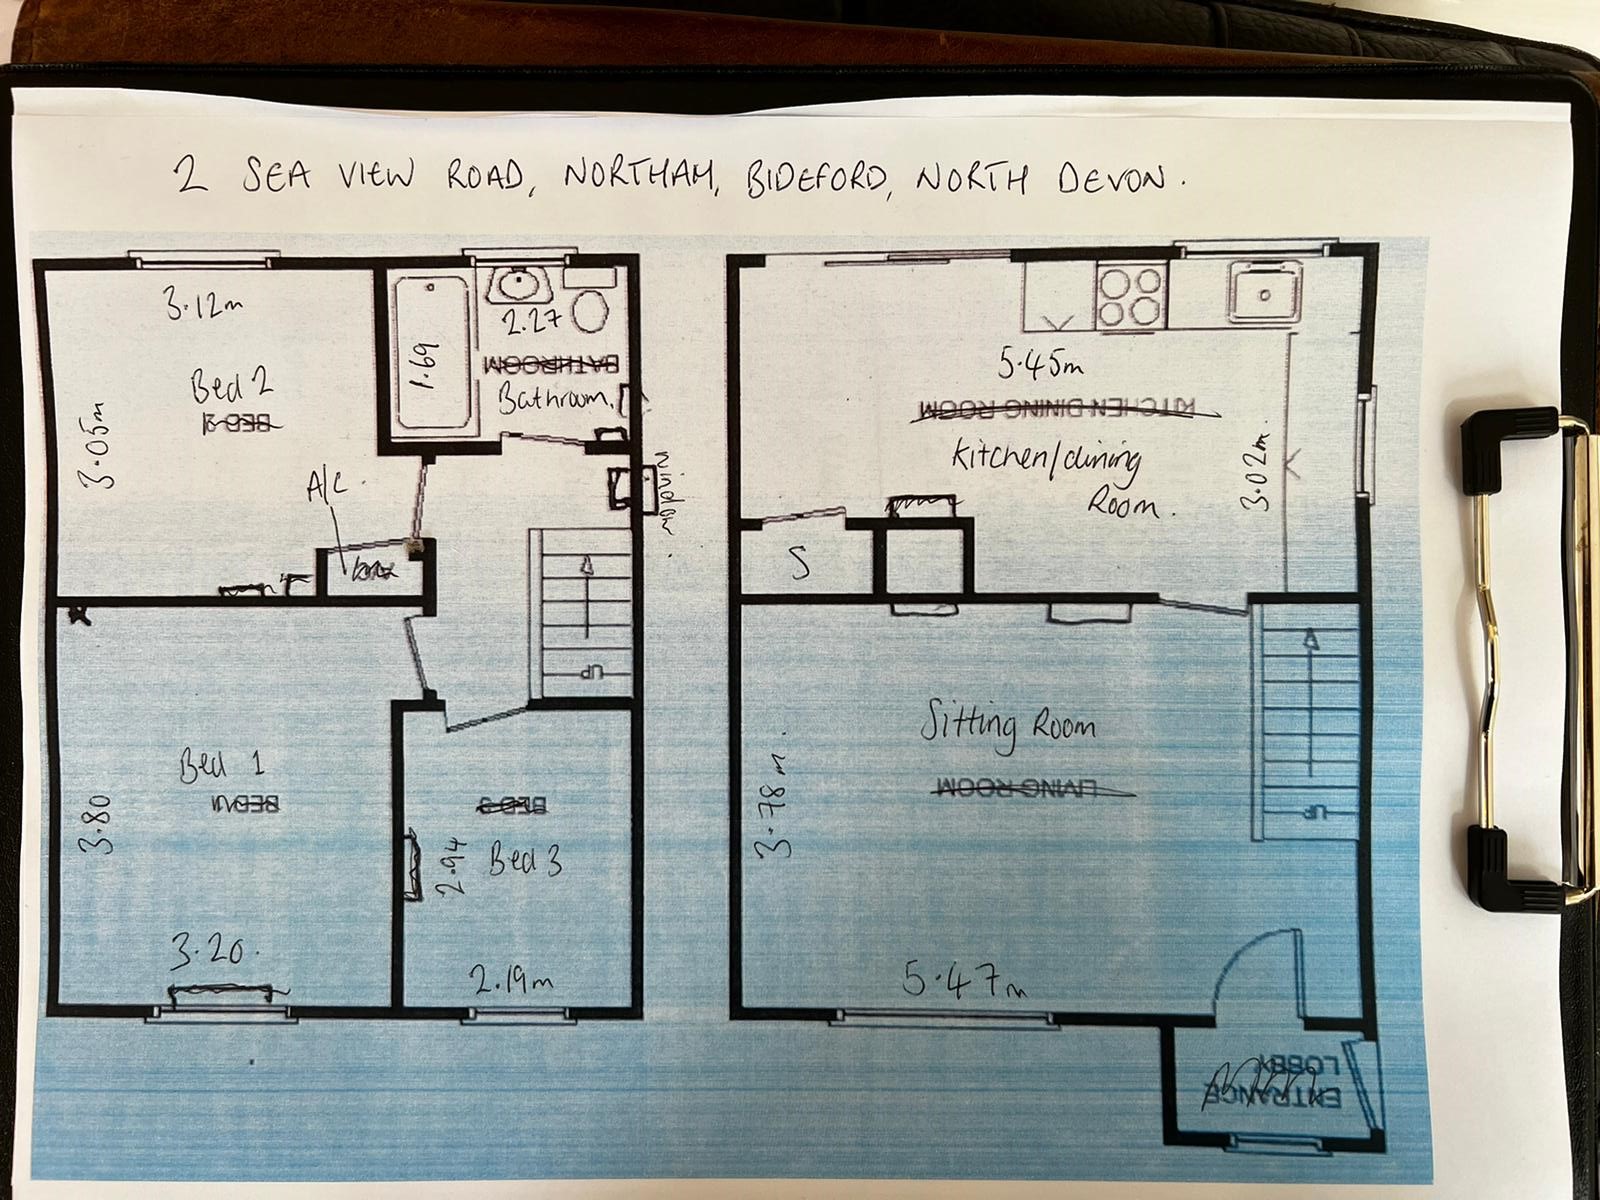 2 SEA VIEW ROAD, NORTHAM, BIDEFORD, NORTH DEVON.
3.12m
Bed 2
BED 2
3.05m
A/C
1.69
2.27
BATHROOM
Bathroom.
window
UP
Bed 1
BED 1
3.80
3.20.
BED 3
Bed 3
2.94
2.19m
5.45m
KITCHEN DINING ROOM
Kitchen/dining
Room.
3.02m.
S
Sitting Room
LIVING ROOM
3.78m.
5.47m
UP
ENTRANCE
LOBBY